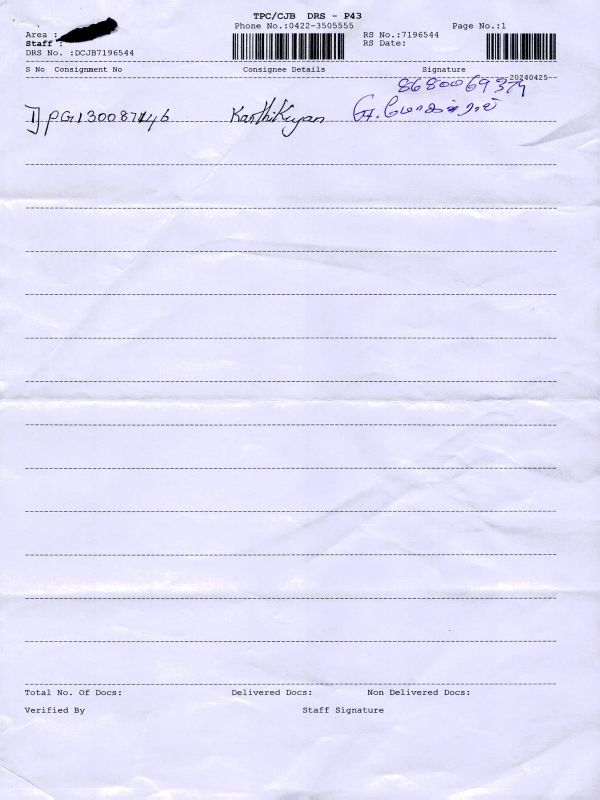 TPC/CJB DRS - P43
Phone No.:0422-3505555 Page No.:1
Area :
RS No.:7196544
Staff :
RS Date:
DRS No. :DCJB7196544
S No Consignment No Consignee Details Signature
20240425
8680069379
1] PG130087446 Karthikeyan
Total No. Of Docs: Delivered Docs: Non Delivered Docs:
Verified By Staff Signature